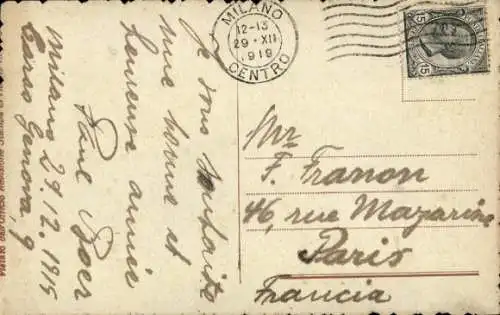 MILANO
12-13
29·XII
1919
CENTRO
15
15
Je vous souhaite
une bonne et
heureuse année
Paul Boer
Milano 29.12.1919
Corso Genova, 9
Mr
F. Franon
46, rue Mazarine
Paris
Francia